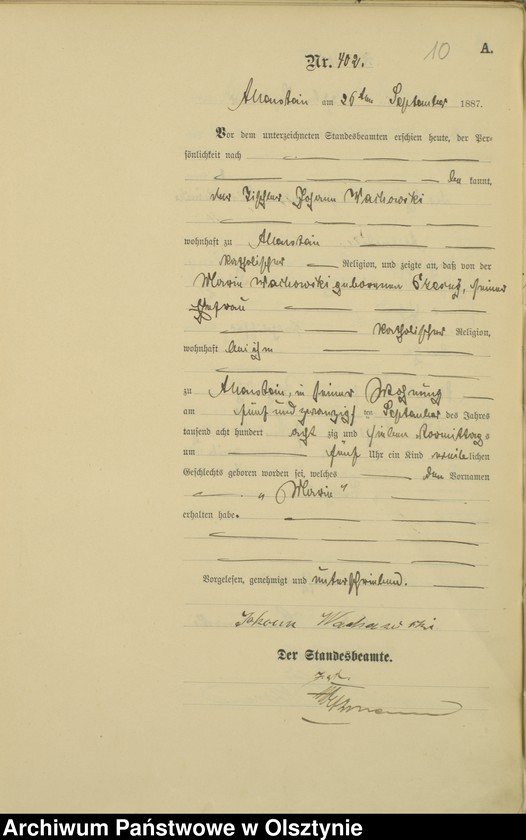 10 A.
Nr. 402.
Allenstein am 26ten September 1887.
Vor dem unterzeichneten Standesbeamten erschien heute, der Per=
sönlichkeit nach
be kannt,
der Tischler Johann Wachowski
wohnhaft zu Allenstein
katholischer Religion, und zeigte an, daß von der
Marie Wachowski geborenen seiner
Ehefrau
katholischer Religion,
wohnhaft bei ihm
zu Allenstein, in seiner Wohnung
am fünf und zwanzigsten September des Jahres
tausend acht hundert acht zig und sieben Vormittags
um fünf Uhr ein Kind weiblichen
Geschlechts geboren worden sei, welches den Vornamen
„Marie"
erhalten habe.
Vorgelesen, genehmigt und unterschrieben.
Johann Wachowski
Der Standesbeamte.
Archiwum Państwowe w Olsztynie